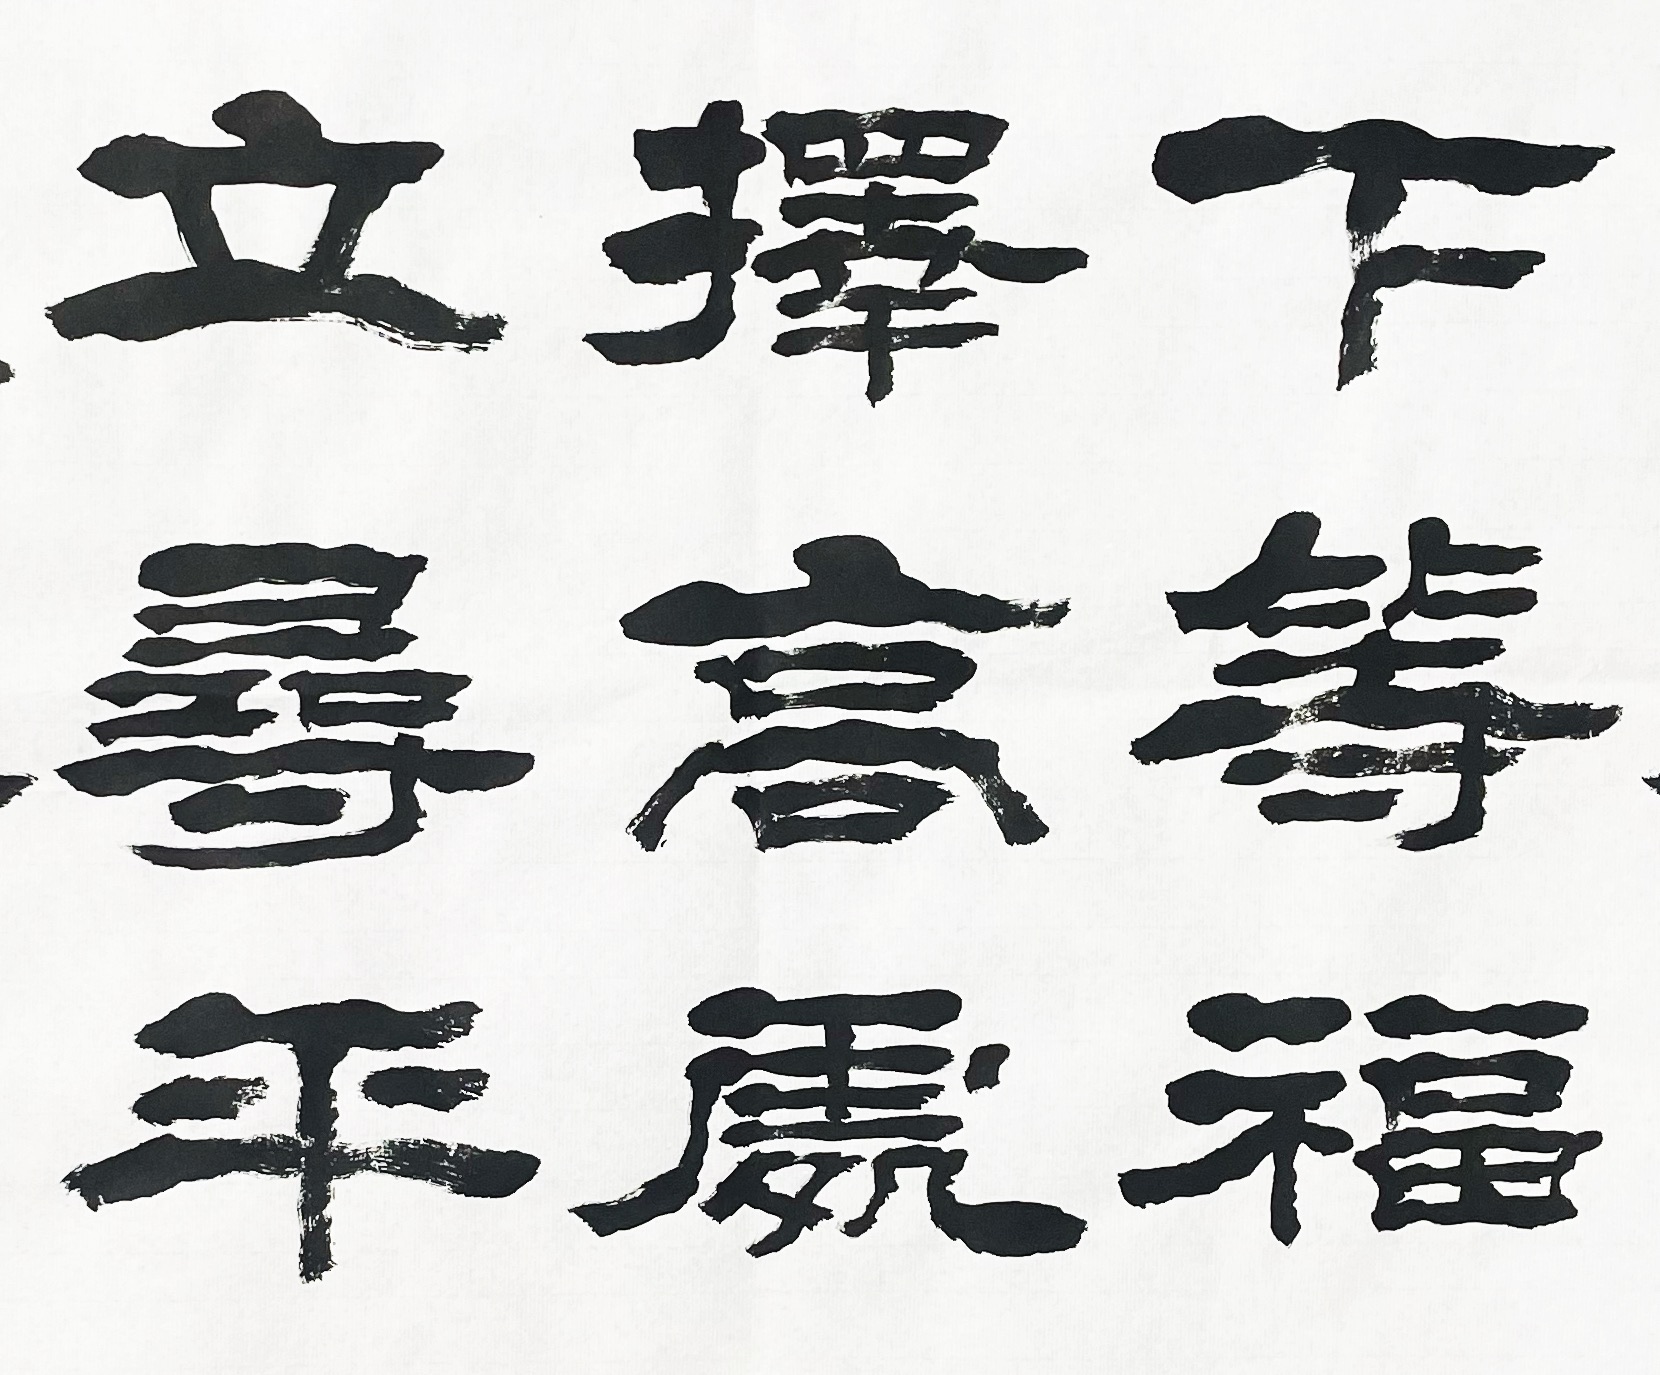 下等福
擇高處
立尋平